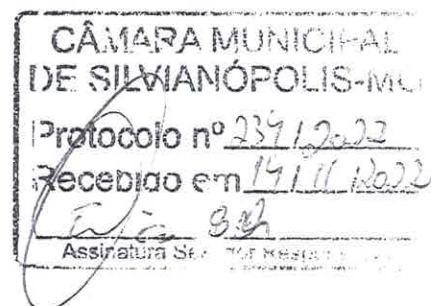 CÂMARA MUNICIPAL
DE SILVIANÓPOLIS-MG
Protocolo nº 239/2022
Recebido em 14/11/2022
Assinatura